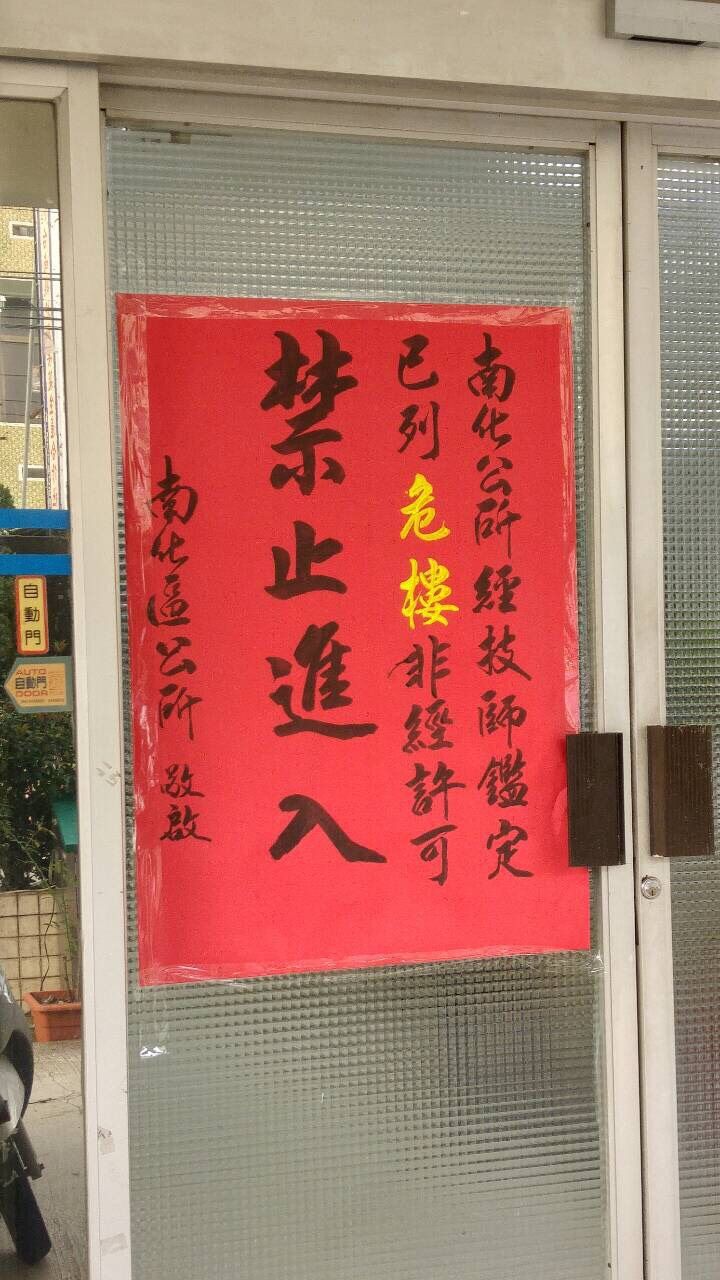 南化公所經技師鑑定
已列危樓非經許可
禁止進入
南化區公所 敬啟
自動門
AUTO
自動門
DOOR